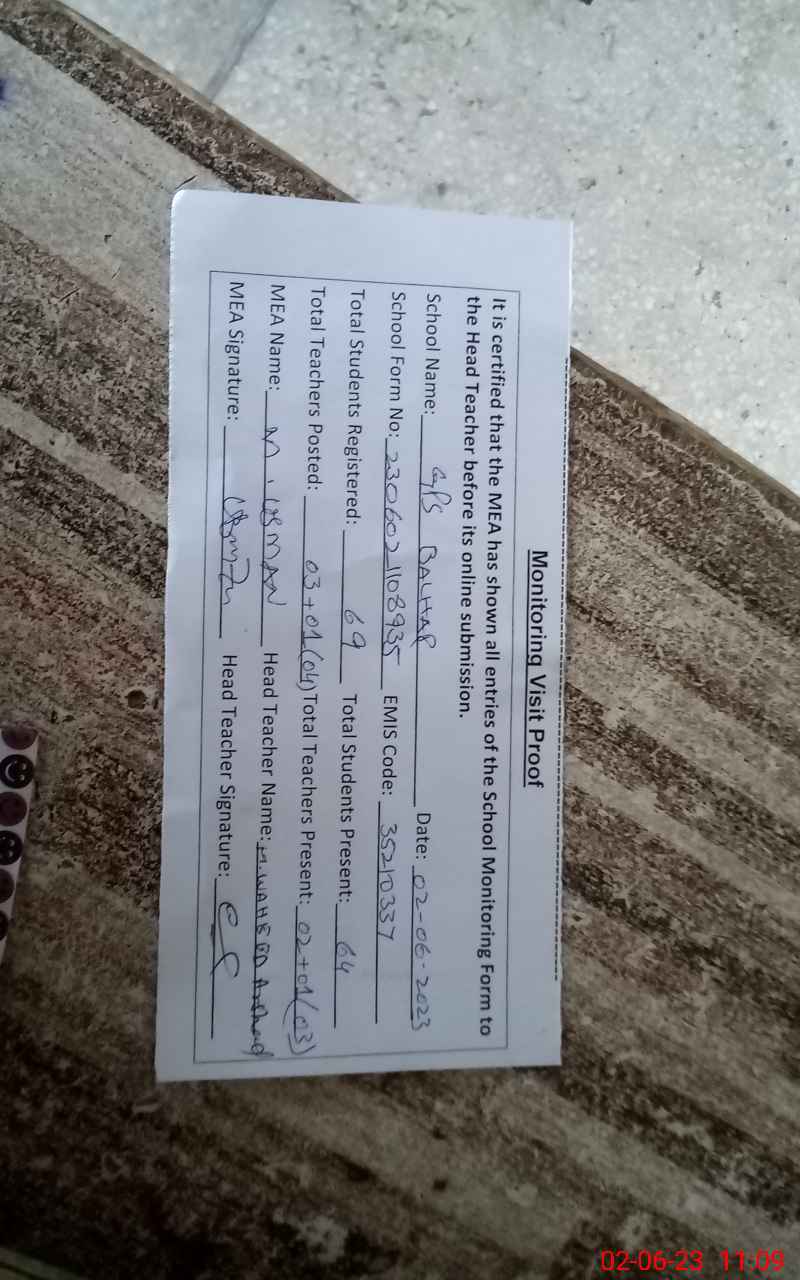 Monitoring Visit Proof
It is certified that the MEA has shown all entries of the School Monitoring Form to
the Head Teacher before its online submission.
School Name: GPS BALHAR Date: 02-06-2023
School Form No: 2306021108935 EMIS Code: 35210337
Total Students Registered: 69 Total Students Present: 64
Total Teachers Posted: 03+01(04) Total Teachers Present: 02+01(03)
MEA Name: M. USMAN Head Teacher Name: M. WAHEED Arshad
MEA Signature: Usman Head Teacher Signature:
02-06-23 11:09